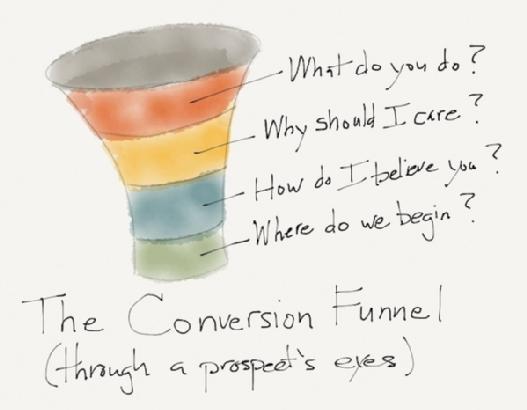 What do you do?
Why should I care?
How do I believe you?
Where do we begin?
The Conversion Funnel
(through a prospect's eyes)